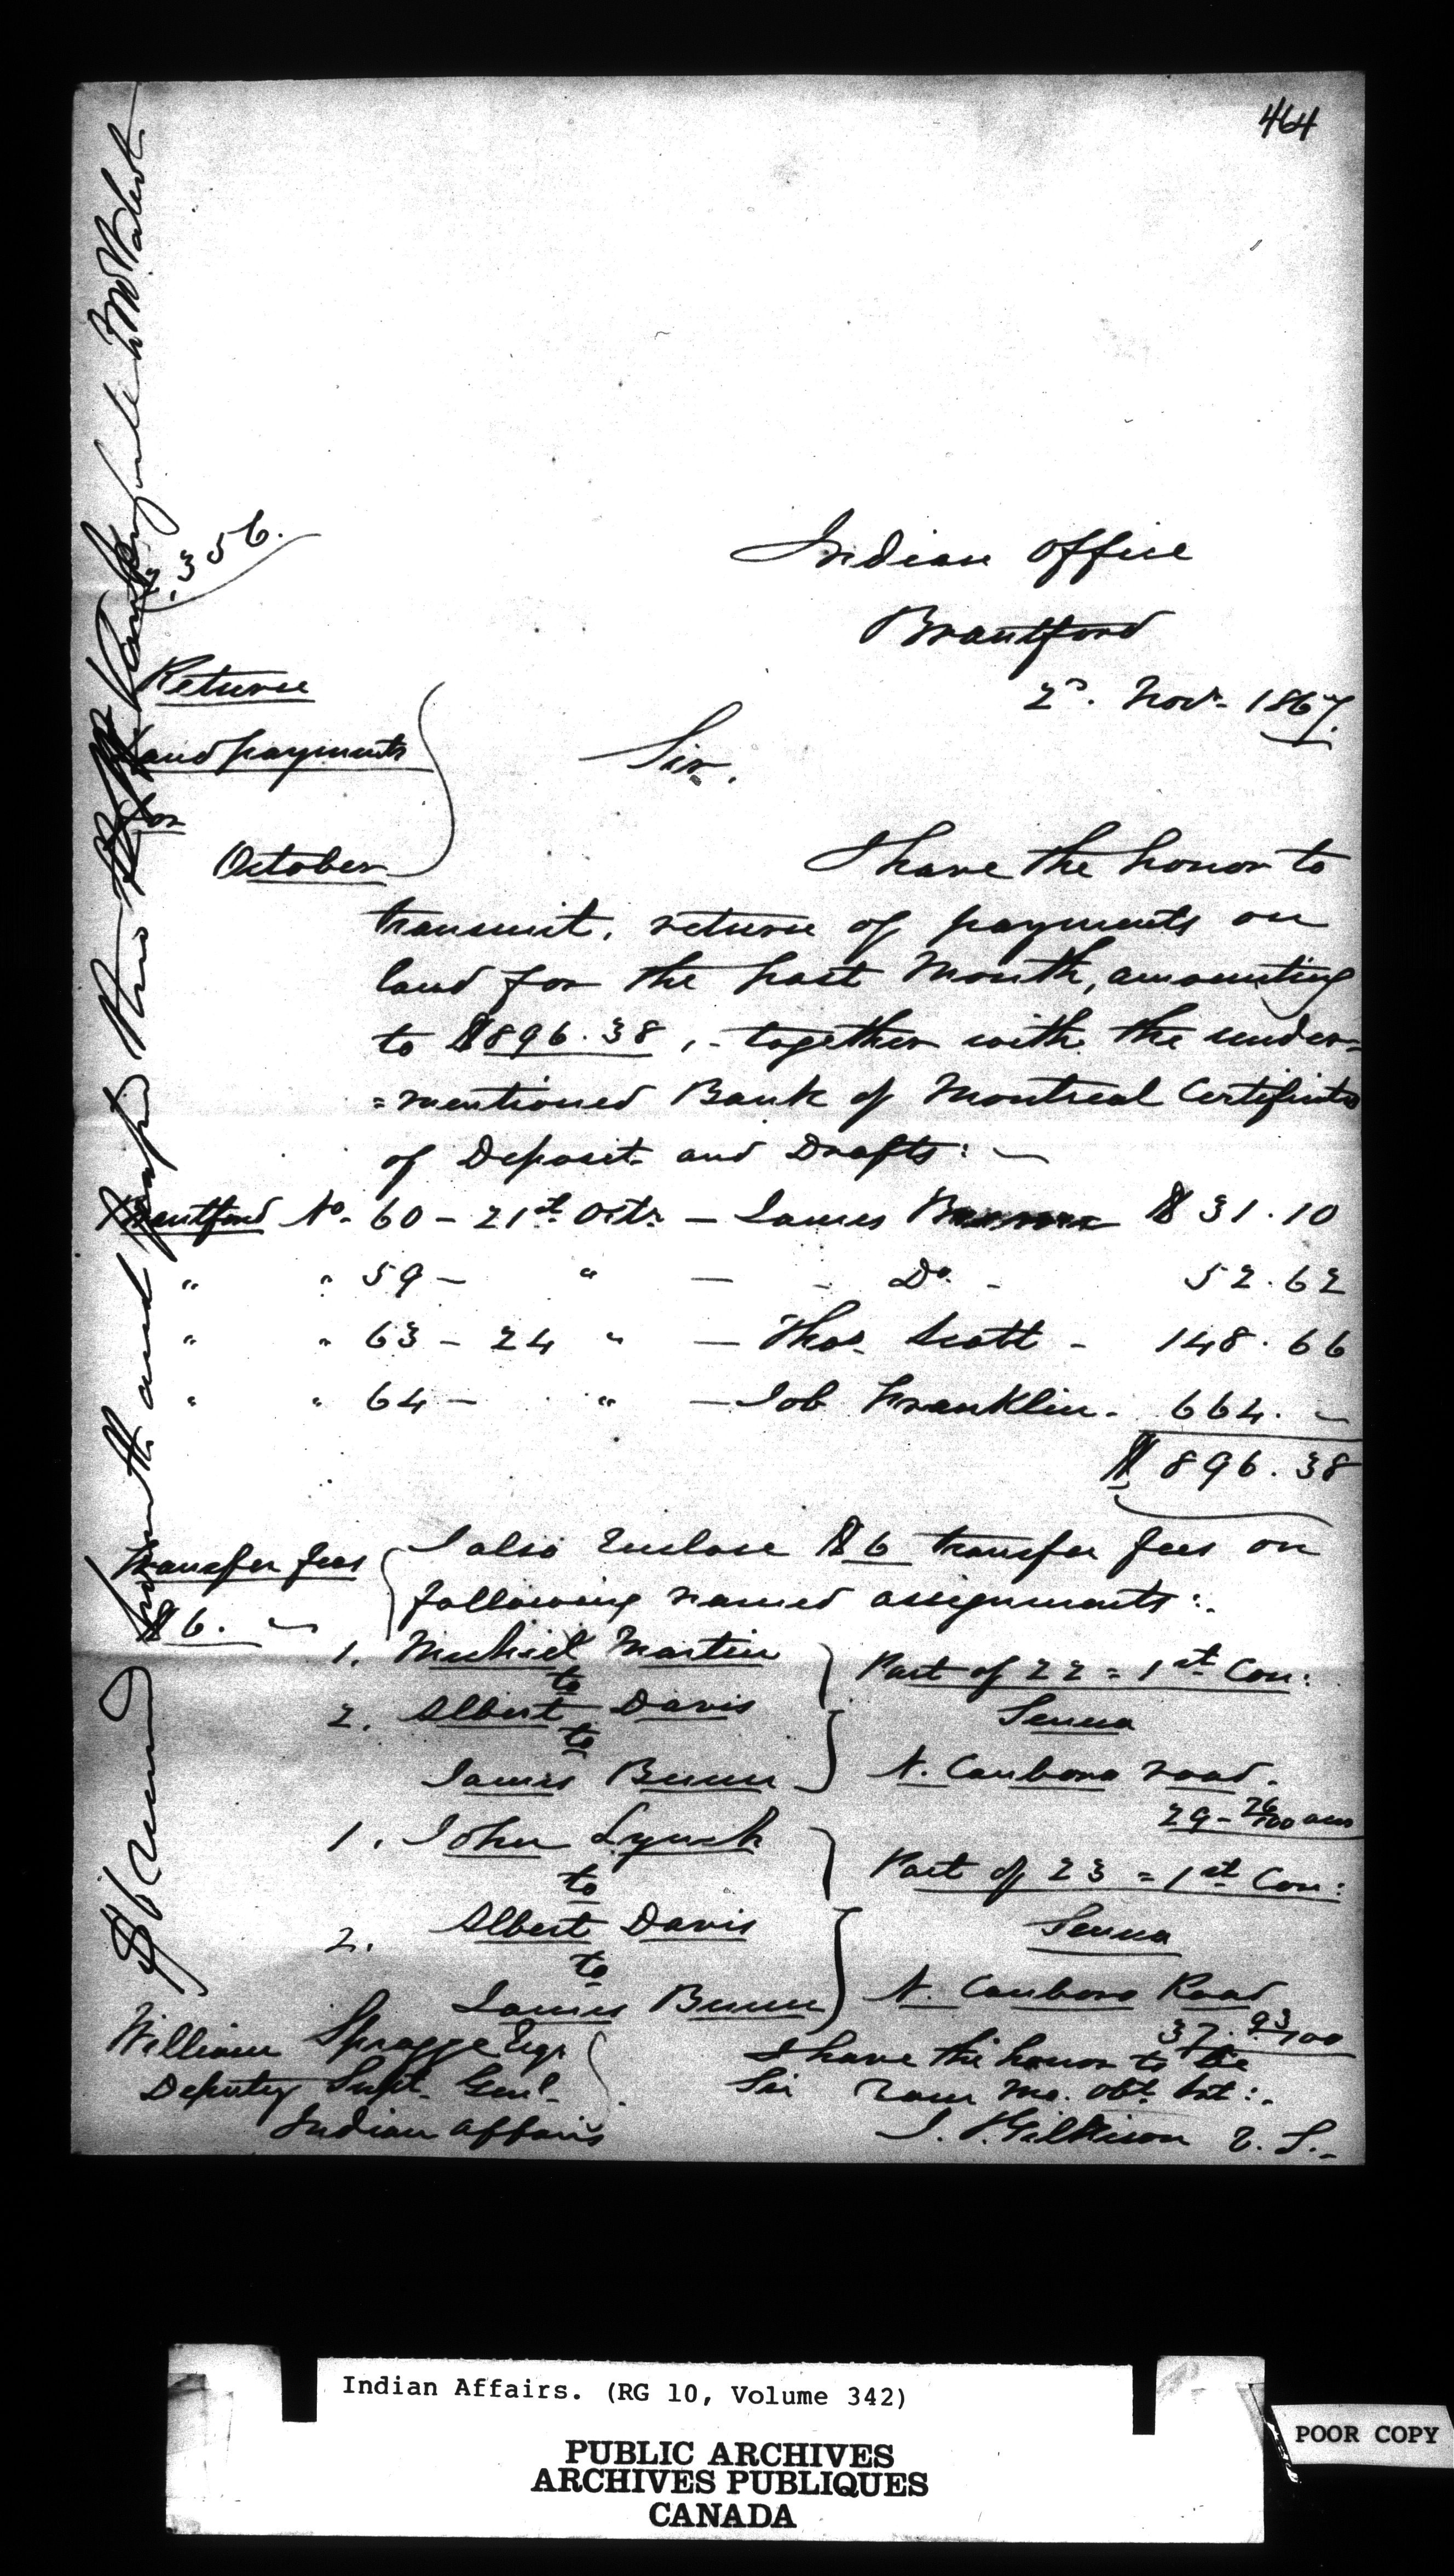 464
356.
Indian Office
Brantford
2d. Novr. 1867.
Return
Land payments
for
October
Sir.
I have the honor to
transmit, return of payments on
land for the past Month, amounting
to $896.38, - together with the under=
=mentioned Bank of Montreal Certificates
of Deposit and Drafts: ~
Brantford No. 60 - 21st Octr. - James $31.10
" " 59 - " - Do. - 52.62
" " 63 - 24 " - Thos. Scott - 148.66
" " 64 - " - Job Franklin. 664. ~
$896.38
Transfer fees
$6. ~
I also Enclose $6 transfer fees on
following named assignments:.
1. Michael Martin
to
2. Albert Davis
to
James Bunn
Part of 22 = 1st Con:
Seneca
N. Canboro road.
29 - 26/100 acres
1. John Lynch
to
2. Albert Davis
to
James Bunn
Part of 23 = 1st Con:
Seneca
N. Canboro Road
37. 93/100
I have the honor to be
Sir Your Mo. Obt. Svt:.
J. T. Gilkison V. S.-
William Spragge Esqr
Deputy Supt. Genl.
Indian Affairs
Indian Affairs. (RG 10, Volume 342)
PUBLIC ARCHIVES
ARCHIVES PUBLIQUES
CANADA
POOR COPY